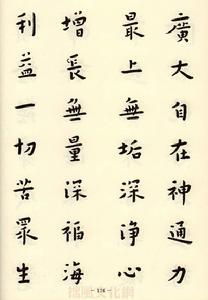 廣大自在神通力
最上無垢深淨心
增長無量深福海
利益一切苦眾生